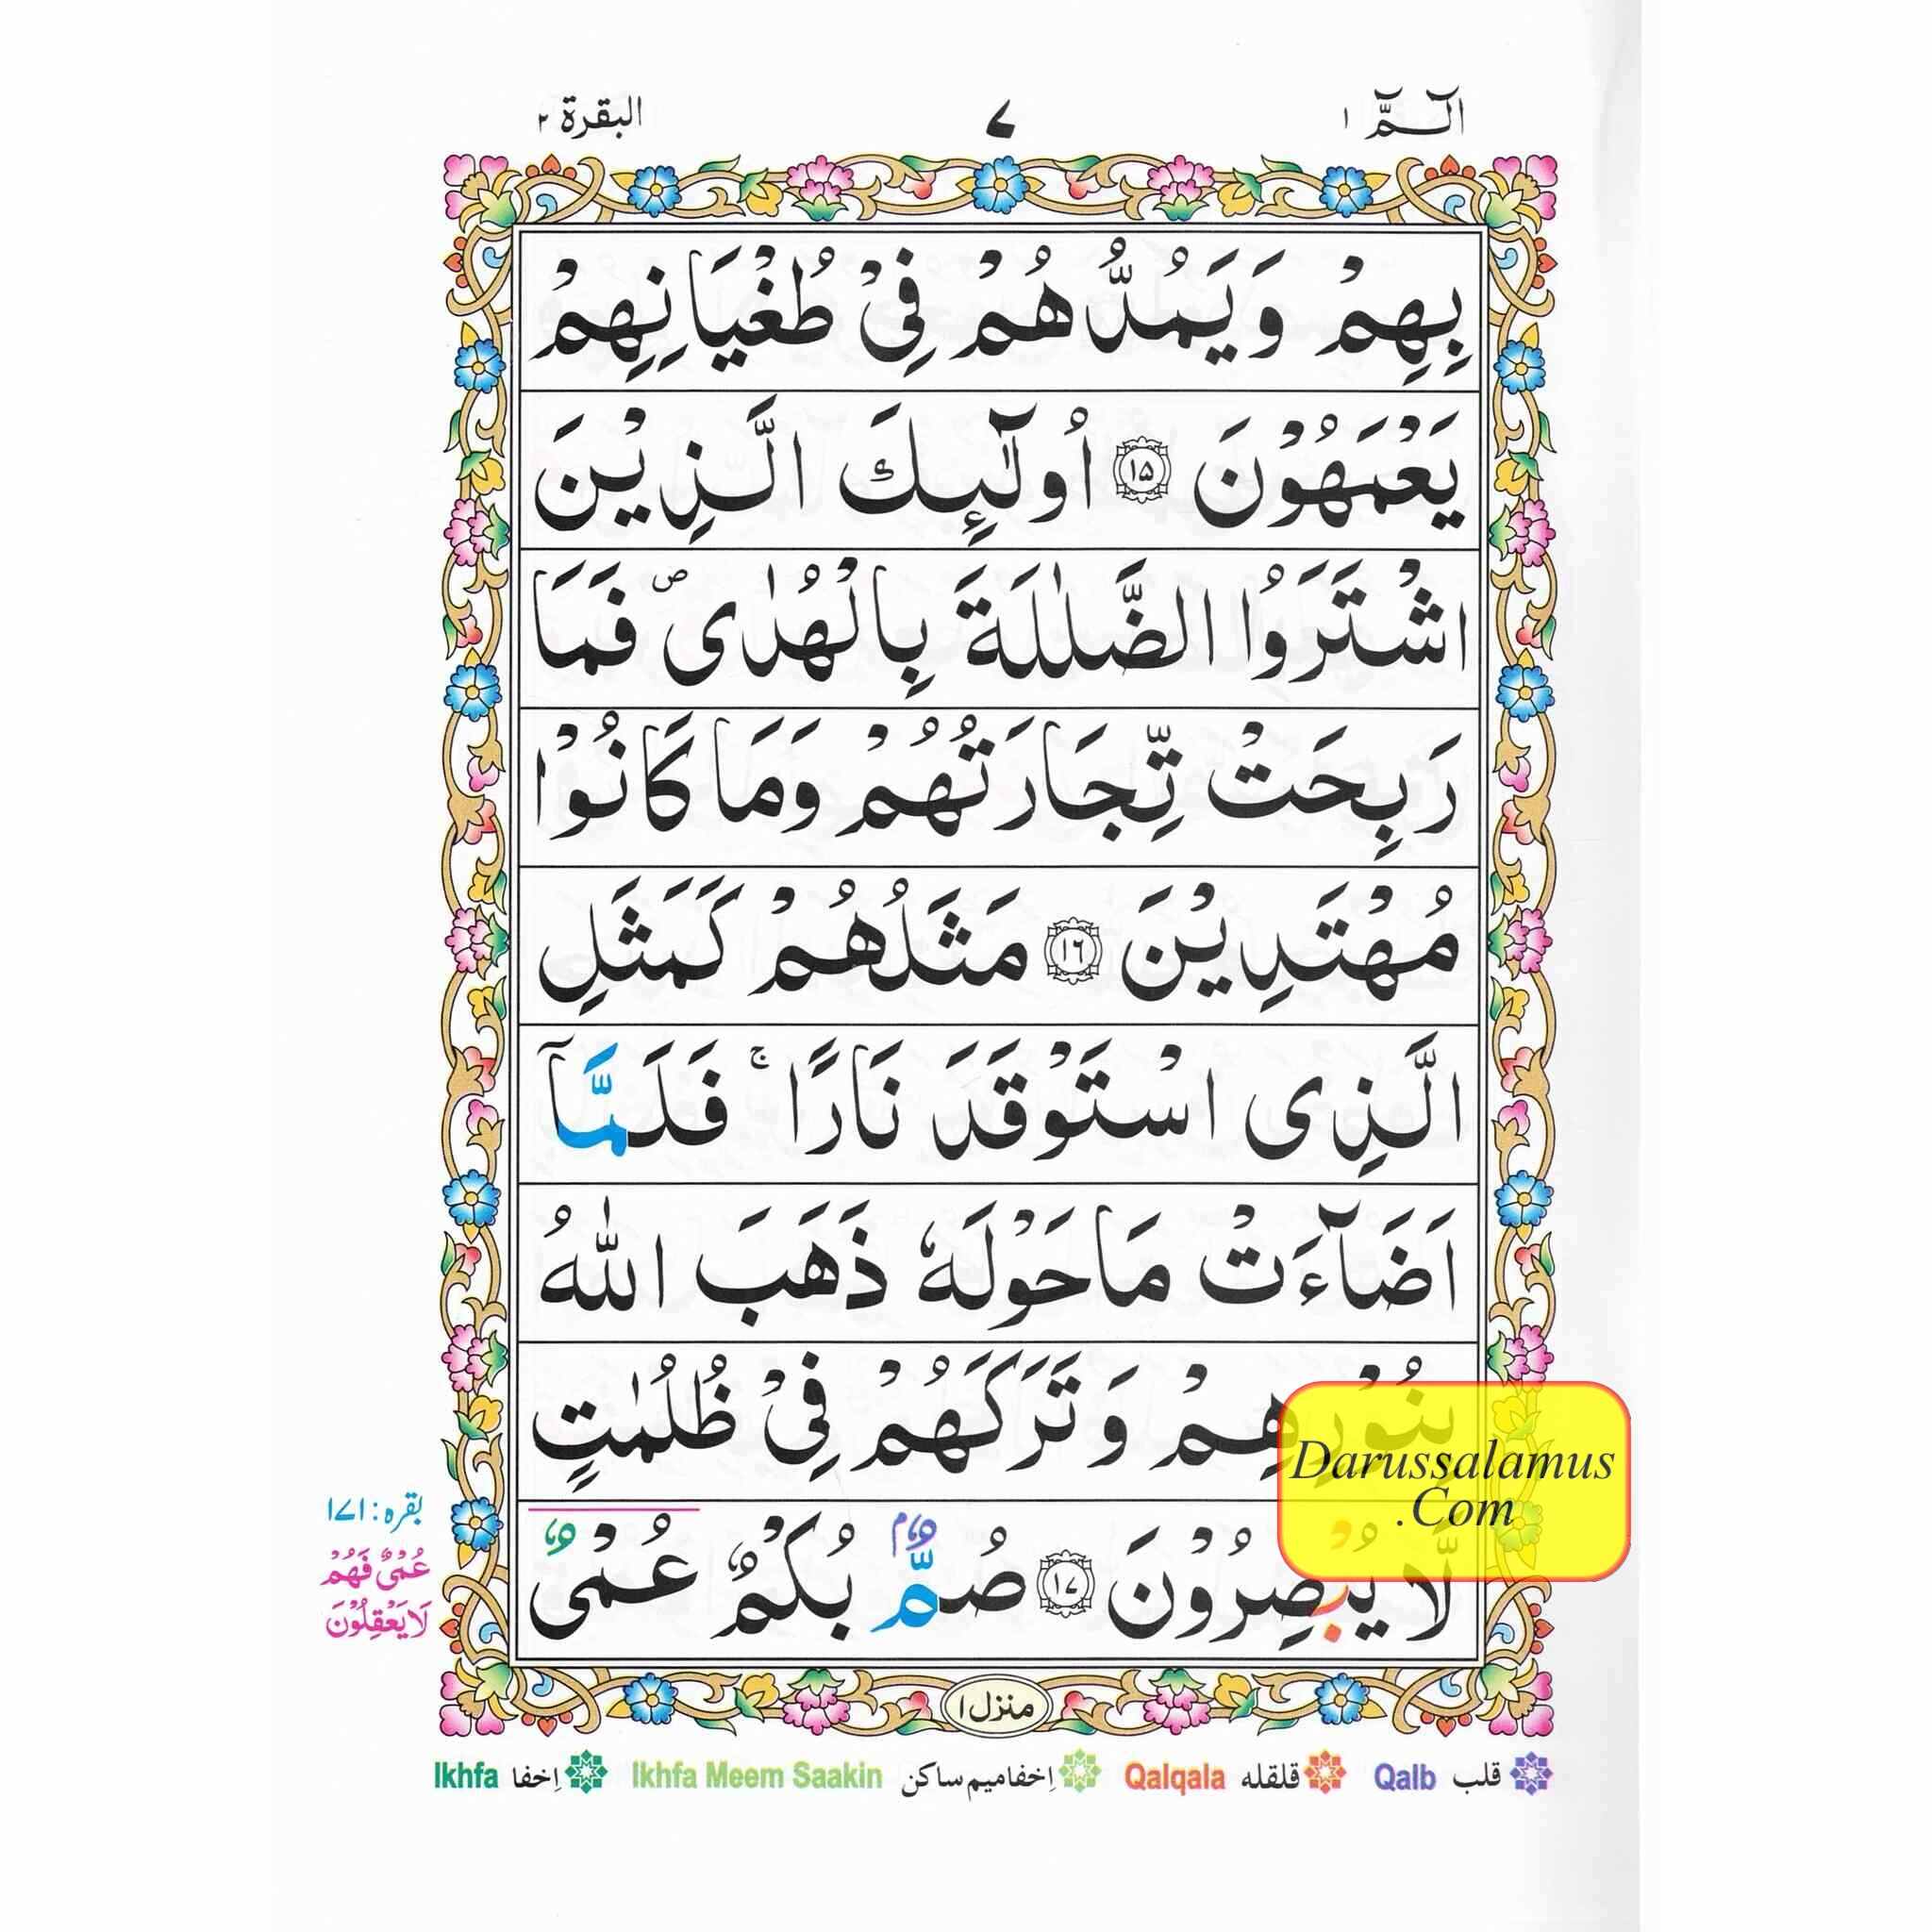 الٓـمّٓ ١ ٧ البقرة ٢
بِهِمْ وَيَمُدُّهُمْ فِیْ طُغْيَانِهِمْ
يَعْمَهُوْنَ ۝١٥ اُولٰٓئِكَ الَّذِيْنَ
اشْتَرَوُا الضَّلٰلَةَ بِالْهُدٰى ۪ فَمَا
رَبِحَتْ تِّجَارَتُهُمْ وَمَا كَانُوْا
مُهْتَدِيْنَ ۝١٦ مَثَلُهُمْ كَمَثَلِ
الَّذِی اسْتَوْقَدَ نَارًا ۚ فَلَمَّآ
اَضَآءَتْ مَا حَوْلَهٗ ذَهَبَ اللّٰهُ
بِنُوْرِهِمْ وَتَرَكَهُمْ فِیْ ظُلُمٰتٍ
لَّا يُبْصِرُوْنَ ۝١٧ صُمٌّۢ بُكْمٌ عُمْیٌ
بقره: ١٧١
عُمْیٌ فَهُمْ
لَا يَعْقِلُوْنَ
Darussalamus
.Com
منزل ١
قلب Qalb قلقله Qalqala اِخفا میم ساکن Ikhfa Meem Saakin اِخفا Ikhfa